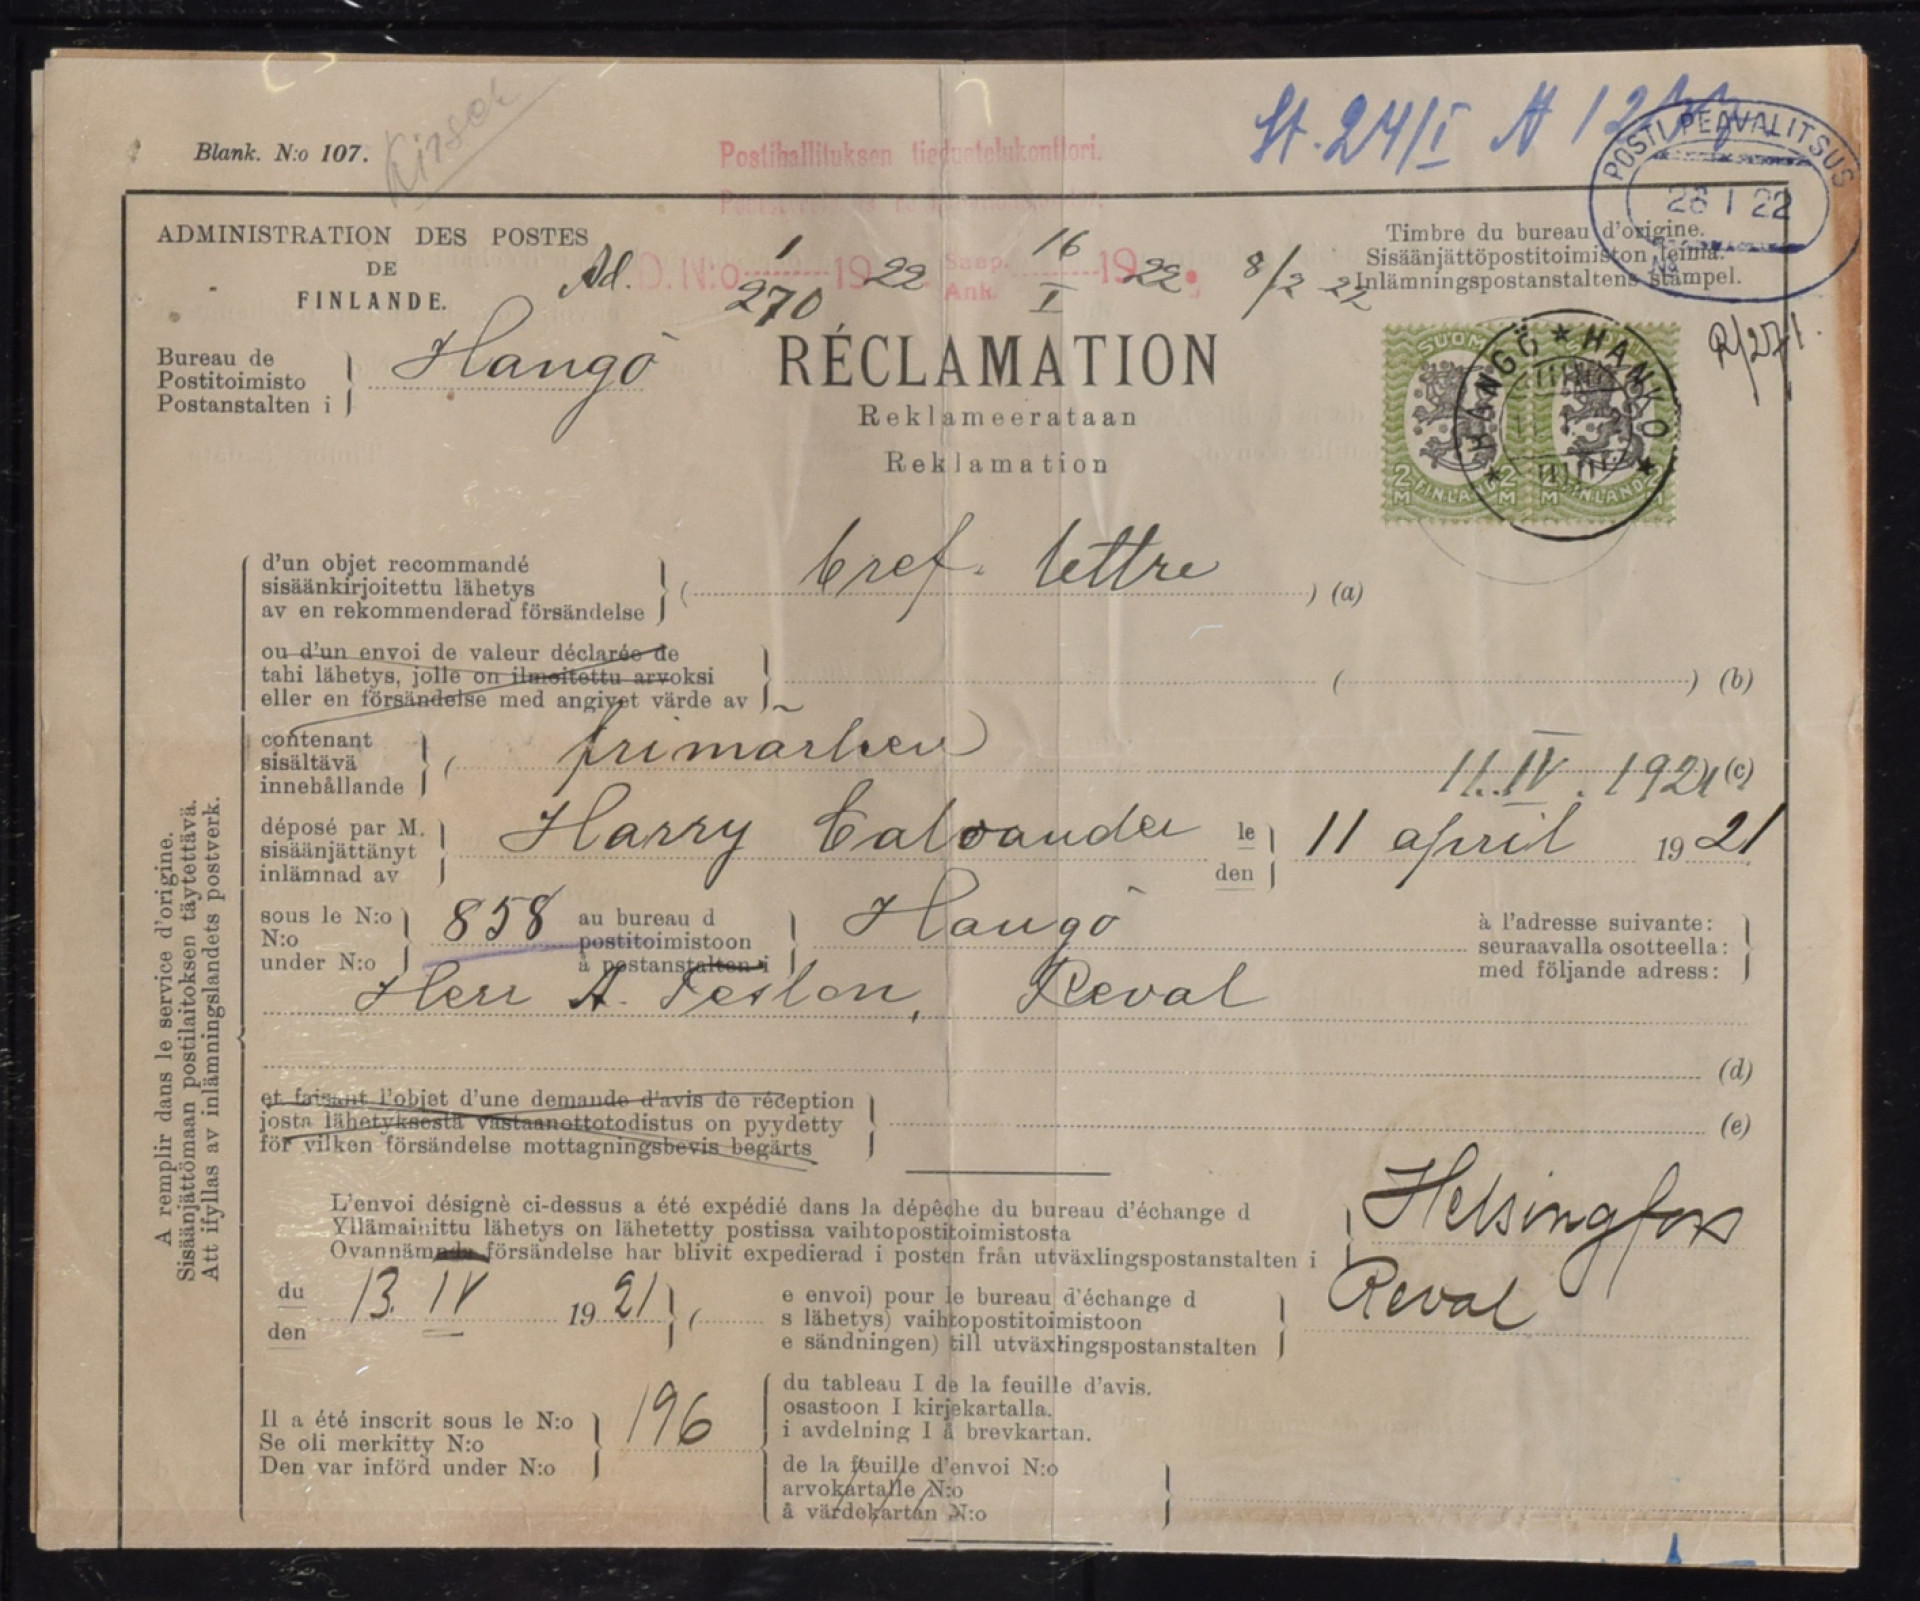 Kirsch
St. 24/I A
Blank. N:o 107.
Postihallituksen tiedustelukonttori.
POSTI PEAVALITSUS
26 I 22
No
ADMINISTRATION DES POSTES
DE
FINLANDE.
Ad. D. N:o 1 1922 Saap. 16 1922. 8/2 22
270 Ank. I
Timbre du bureau d'origine.
Sisäänjättöpostitoimiston leima.
Inlämningspostanstaltens stämpel.
Bureau de
Postitoimisto
Postanstalten i
Hangö
RÉCLAMATION
Reklameerataan
Reklamation
SUOMI
2 M FINLAND 2 M
2 M FINLAND 2 M
HANGÖ * HANKO
d'un objet recommandé
sisäänkirjoitettu lähetys
av en rekommenderad försändelse
( bref. lettre ) (a)
ou d'un envoi de valeur déclarée de
tahi lähetys, jolle on ilmoitettu arvoksi
eller en försändelse med angivet värde av
( ) (b)
contenant
sisältävä
innehållande
( frimärken 11.IV.1921 ) (c)
déposé par M.
sisäänjättänyt
inlämnad av
Harry Calvander le den 11 april 1921
sous le N:o
N:o
under N:o
858
au bureau d
postitoimistoon
å postanstalten i
Hangö
à l'adresse suivante:
seuraavalla osotteella:
med följande adress:
Herr A. Feslon, Reval
(d)
et faisant l'objet d'une demande d'avis de réception
josta lähetyksestä vastaanottotodistus on pyydetty
för vilken försändelse mottagningsbevis begärts
(e)
L'envoi désignè ci-dessus a été expédié dans la dépêche du bureau d'échange d
Yllämainittu lähetys on lähetetty postissa vaihtopostitoimistosta
Ovannämnda försändelse har blivit expedierad i posten från utväxlingspostanstalten i
Helsingfors
du
den
13. IV 1921 (
e envoi) pour le bureau d'échange d
s lähetys) vaihtopostitoimistoon
e sändningen) till utväxlingspostanstalten
Reval
Il a été inscrit sous le N:o
Se oli merkitty N:o
Den var införd under N:o
196
du tableau I de la feuille d'avis.
osastoon I kirjekartalla.
i avdelning I å brevkartan.
de la feuille d'envoi N:o
arvokartalle N:o
å värdekartan N:o
A remplir dans le service d'origine.
Sisäänjättömaan postilaitoksen täytettävä.
Att ifyllas av inlämningslandets postverk.